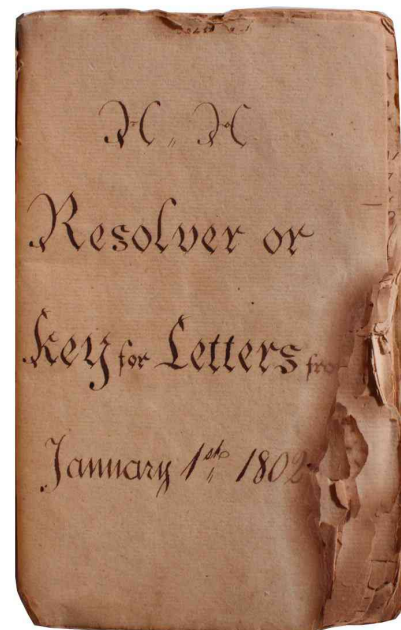 H,, H
Resolver or
Key for Letters from
January 1st 1802